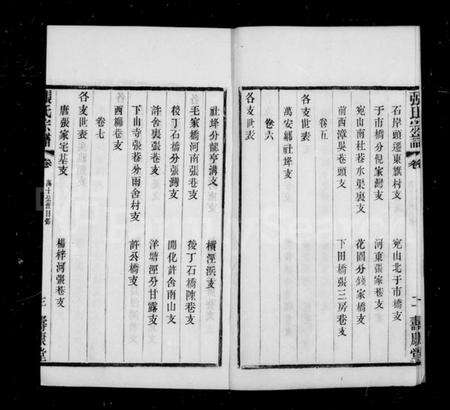 張氏宗譜 卷
石岸頭遷東旗村支
宛山北于市橋支
于市橋分倪家灣支
河東張家巷支
宛山南杜巷水渠裏支
花園分錢家橋支
前西漳吳巷頭支
下田橋張三房巷支
卷五
各支世表
萬安鄉社埄支
卷六
各支世表
二 壽康堂
社埄分龍亨溝支
橫涇浜支
毛家橋河南張巷支
後丁石橋陳巷支
後丁石橋分張灣支
開化許舍南山支
許舍裏張巷支
洋塘涇分甘露支
下山寺張巷分南舍村支
許巷橋支
西廊巷支
卷七
各支世表
唐張家宅基支
楊梓河張巷支
張氏宗譜 卷
三 壽康堂